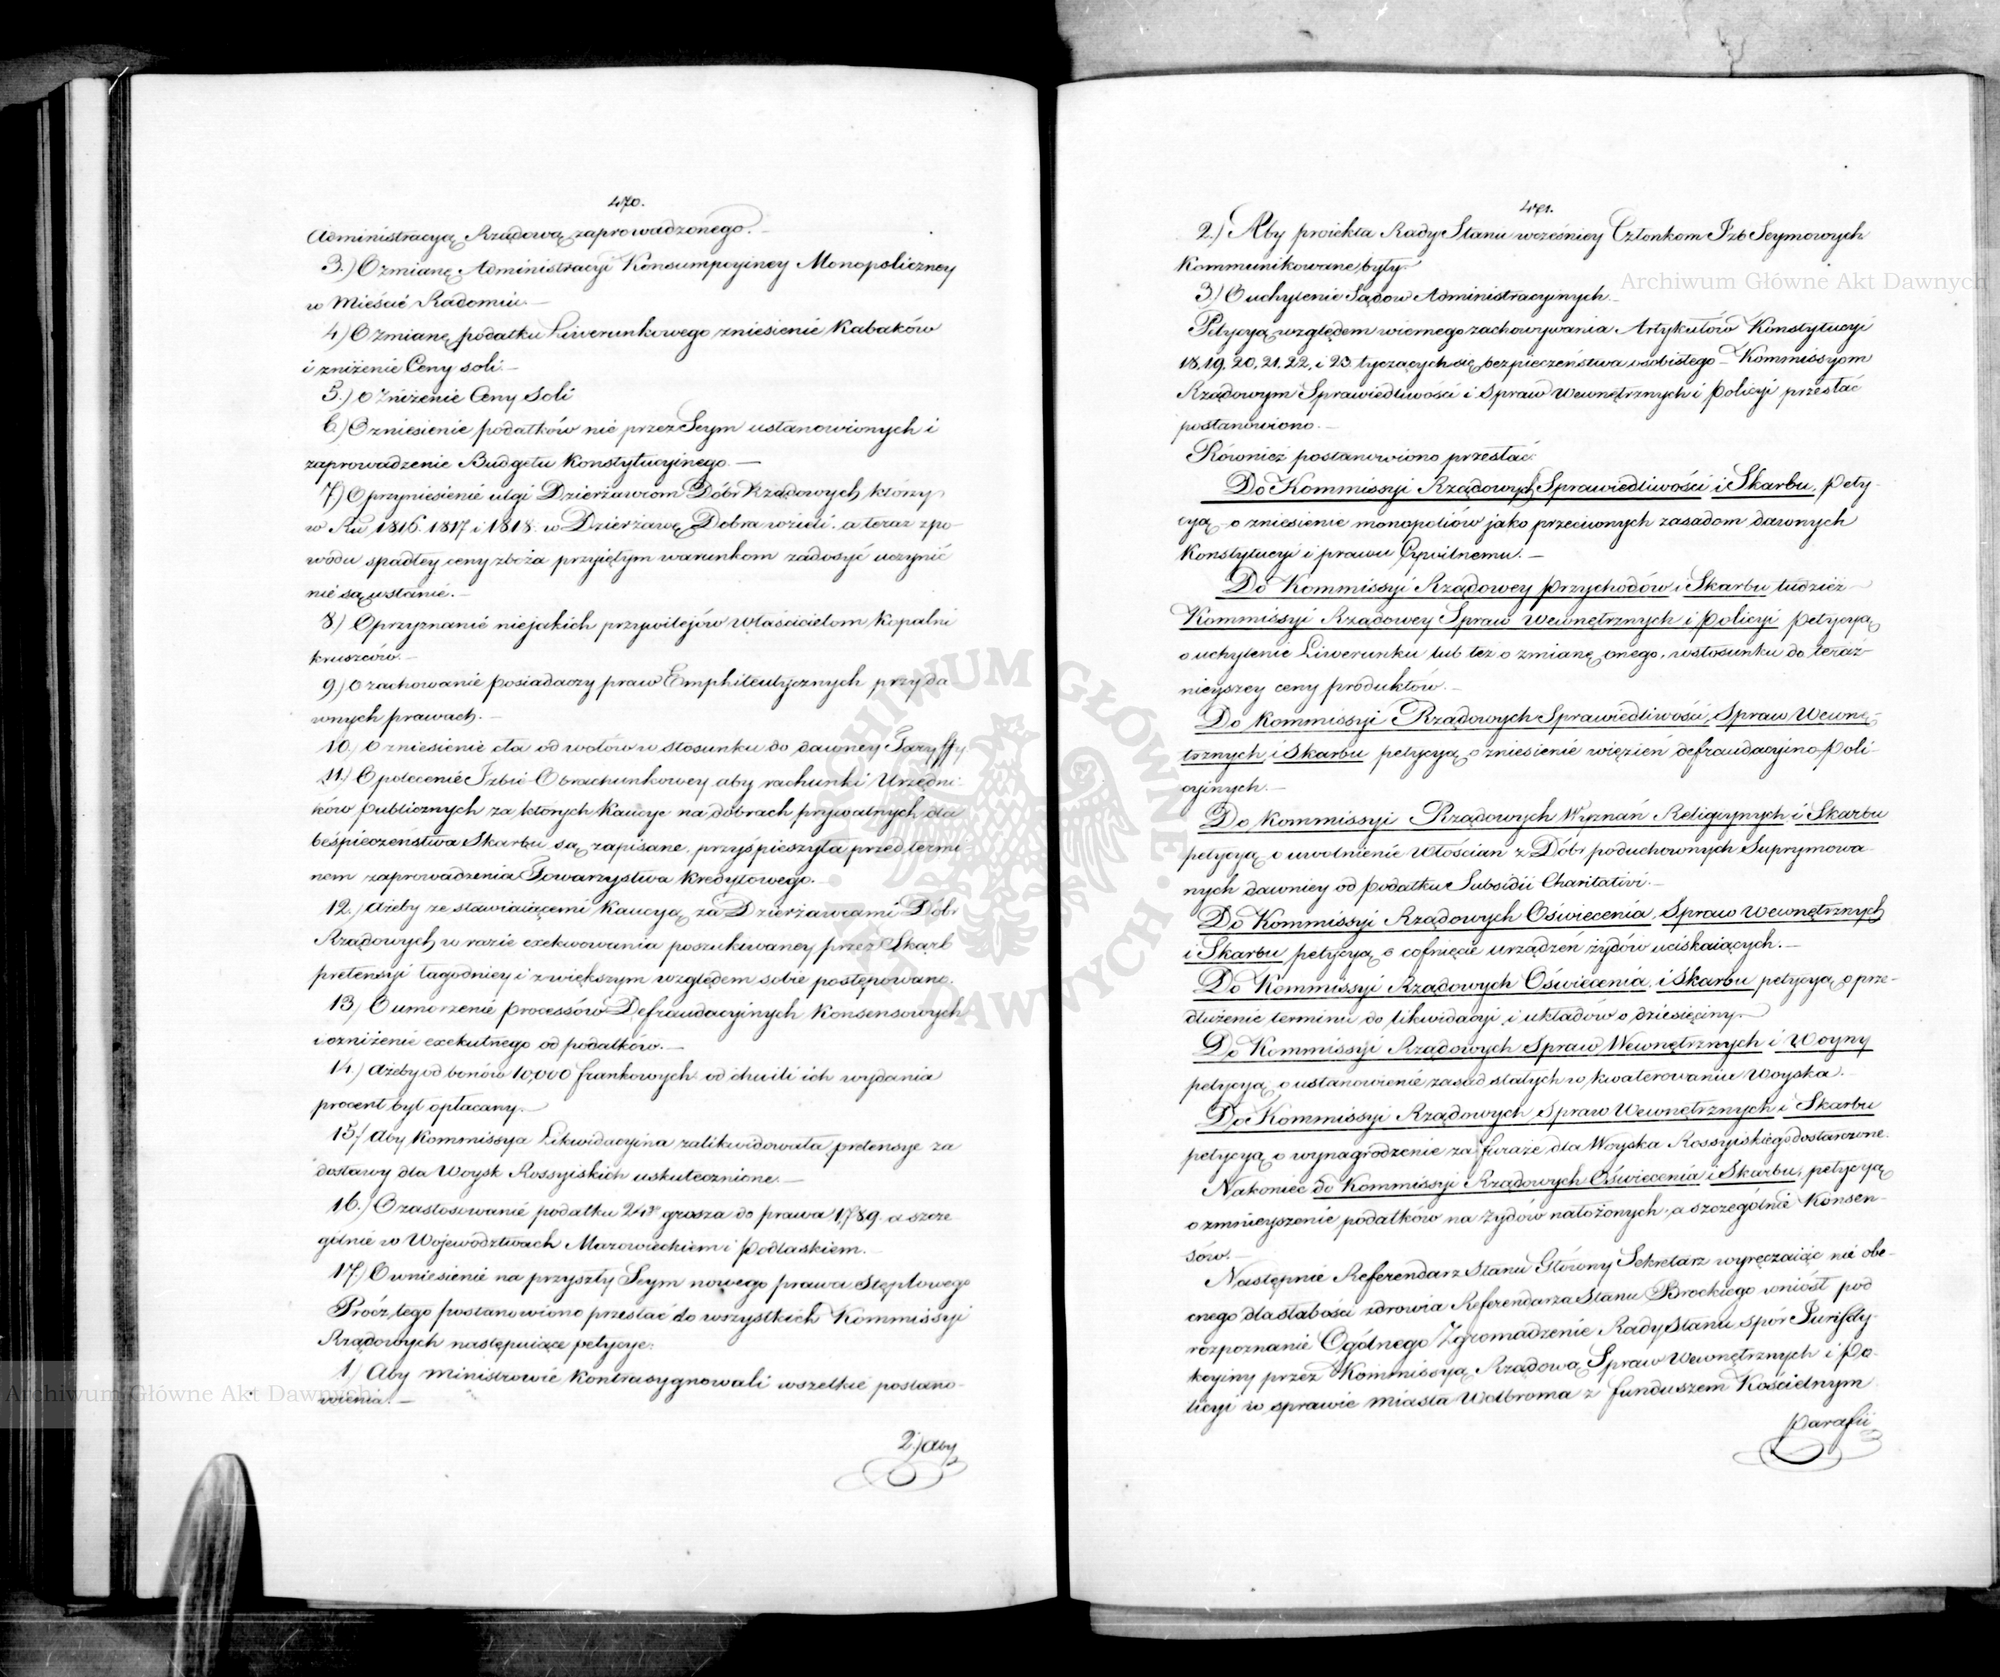 470.
Administracyą Rządową zaprowadzonego.—
3.) O zmianę Administracyi Konsumpcyiney Monopoliczney
w Mieście Radomiu.—
4) O zmianę podatku Liwerunkowego zniesienie Kabaków
i zniżenie Ceny soli.—
5.) O Zniżenie Ceny Soli
6) O zniesienie podatków nie przez Seym ustanowionych i
zaprowadzenie Budgetu Konstytucyjnego.—
7) O przyniesienie ulgi Dzierżawcom Dóbr Rządowych, którzy
w Ru 1816. 1817 i 1818. w Dzierżawę Dobra wzieli, a teraz z po-
wodu spadłey ceny zboża przyiętym warunkom zadosyć uczynić
nie są wstanie.—
8) O przyznanie niejakich przywilejów Właścicielom Kopalni
kruszców.—
9) O zachowanie posiadaczy praw Emphiteutycznych przy da
wnych prawach.—
10.) O zniesienie cła od wołów w stosunku do dawney Taryffy.
11.) O polecenie Izbie Obrachunkowey aby rachunki Urzędni-
ków publicznych za których Kaucye na dobrach prywatnych dla
beśpieczeństwa Skarbu są zapisane, przyśpieszyła przed termi-
nem zaprowadzenia Towarzystwa Kredytowego.—
12.) Ażeby ze stawiaiącemi Kaucyą za Dzierżawcami Dóbr
Rządowych w razie exekwowania poszukiwaney przez Skarb
pretensyi łagodniey i z większym względem sobie postępowano.
13) O umorzenie processów Defraudacyjnych Konsensowych
i o zniżenie exekutnego od podatków.—
14.) Ażeby od bonów 10,000 frankowych od chwili ich wydania
procent był opłacany.—
15.) Aby Kommissya Likwidacyina zalikwidowała pretensye za
dostawy dla Woysk Rossyiskich uskutecznione.—
16.) O zastosowanie podatku 24go grosza do prawa 1789. a szcze-
gólnie w Województwach Mazowieckiem i Podlaskiem.—
17.) O wniesienie na przyszły Seym nowego prawa Stęplowego
Prócz tego postanowiono przesłać do wszystkich Kommissyi
Rządowych następuiące petycye:
1) Aby Ministrowie Kontrasygnowali wszelkie postano-
wienia.—
2.) Aby
471.
2.) Aby proiekta Rady Stanu wcześniey Członkom Izb Seymowych
Kommunikowane były.
3) O uchylenie Sądów Administracyinych.—
Petycyą względem wiernego zachowywania Artykułów Konstytucyi
18, 19, 20, 21, 22, i 23. tyczących się bezpieczeństwa osobistego—Kommissyom
Rządowym Sprawiedliwości i Spraw Wewnętrznych i Policyi przesłać
postanowiono.—
Również postanowiono przesłać:
Do Kommissyi Rządowych Sprawiedliwości i Skarbu, pety-
cyą o zniesienie monopoliów jako przeciwnych zasadom dawnych
Konstytucyi i prawu Cywilnemu.—
Do Kommissyi Rządowey Przychodów i Skarbu tudzież
Kommissyi Rządowey Spraw Wewnętrznych i Policyi petycyą
o uchylenie Liwerunku lub też o zmianę onego, w stosunku do teraź-
nieyszey ceny produktów.—
Do Kommissyi Rządowych Sprawiedliwości, Spraw Wewnę-
trznych i Skarbu petycyą o zniesienie więzień defraudacyino Poli-
cyinych.—
Do Kommissyi Rządowych Wyznań Religiynych i Skarbu
petycyą o uwolnienie Włościan z Dóbr poduchownych Suprymowa-
nych dawniey od podatku Subsidii Charitativi.—
Do Kommissyi Rządowych Oświecenia, Spraw Wewnętrznych
i Skarbu petycyą o cofnięcie urządzeń żydów uciskaiących.—
Do Kommissyi Rządowych Oświecenia, i Skarbu petycyą o prze-
dłużenie terminu do likwidacyi i układów o dziesięciny.—
Do Kommissyi Rządowych Spraw Wewnętrznych i Woyny
petycyą o ustanowienie zasad stałych w kwaterowaniu Woyska.—
Do Kommissyi Rządowych Spraw Wewnętrznych i Skarbu
petycyą o wynagrodzenie za furaże dla Woyska Rossyiskiego dostarczone.
Nakoniec do Kommissyi Rządowych Oświecenia i Skarbu, petycyą
o zmnieyszenie podatków na żydów nałożonych, a szczególnie Konsen-
sów.—
Następnie Referendarz Stanu Główny Sekretarz wyręczaiąc nie obe-
cnego dla słabości zdrowia Referendarza Stanu Brockiego wniósł pod
rozpoznanie Ogólnego Zgromadzenie Rady Stanu spór Jurisdy-
kcyiny przez Kommissyą Rządową Spraw Wewnętrznych i Po-
licyi w sprawie miasta Wolbroma z funduszem Kościelnym
Parafii
Archiwum Główne Akt Dawnych
Archiwum Główne Akt Dawnych
ARCHIWUM GŁÓWNE AKT DAWNYCH